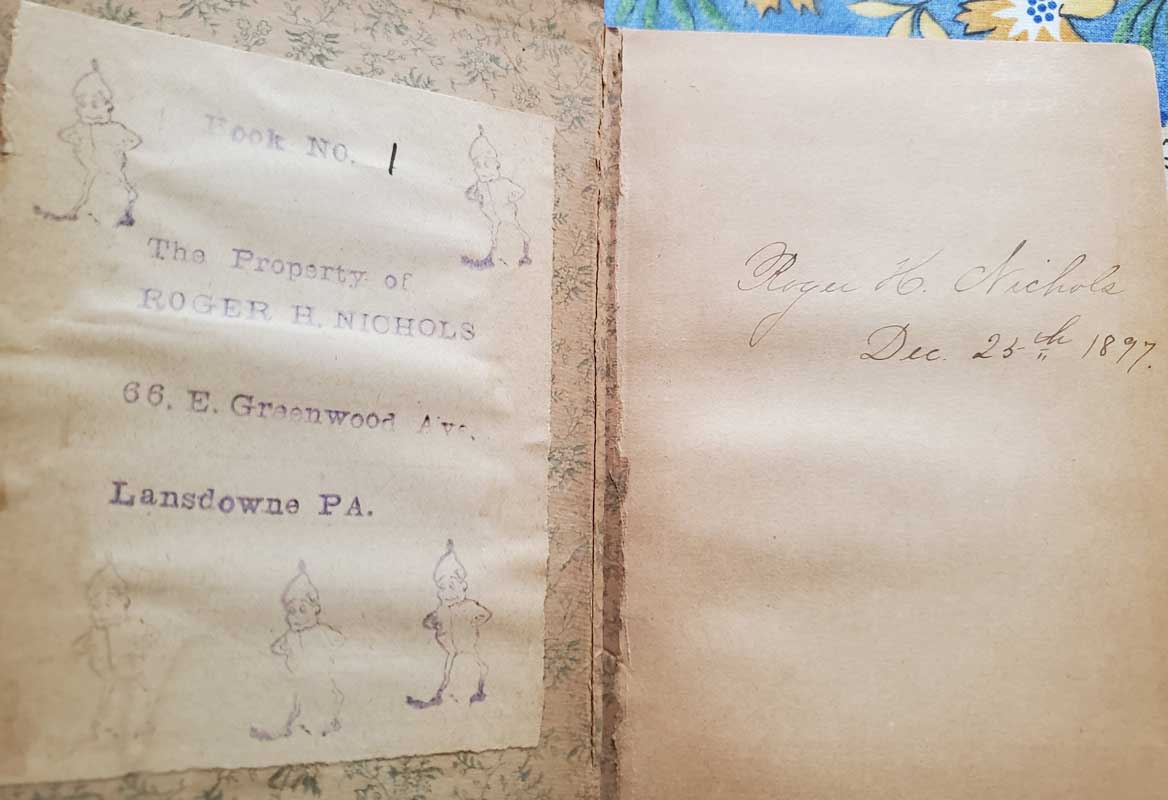 Book NO. 1
The Property of
ROGER H. NICHOLS
66. E. Greenwood Ave.
Lansdowne PA.
Roger H. Nichols
Dec. 25th 1897.